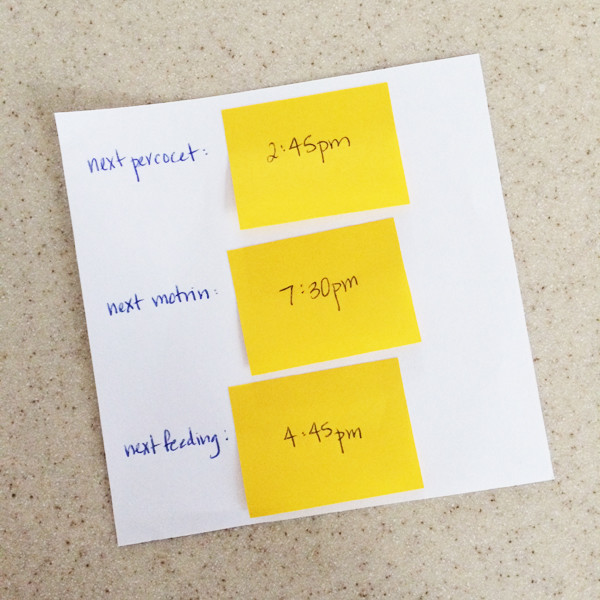 next percocet: 2:45pm
next motrin: 7:30pm
next feeding: 4:45pm